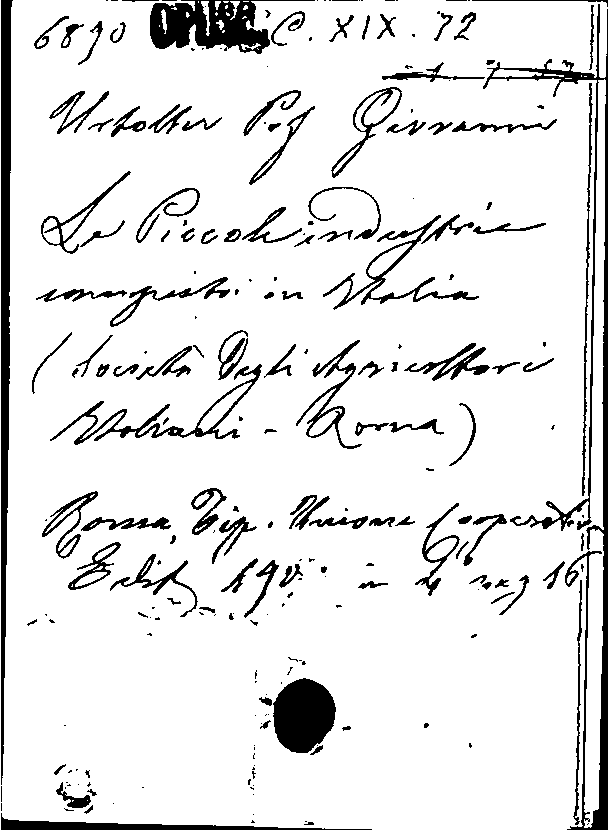 6890 OPUSC. C. XIX. 72
1. 7. 57
Urtoller Prof Giovanni
Le Piccole industrie
in Italia
(Società degli Agricoltori
Italiani - Roma)
Roma, Tip. Unione Cooperativa
Edit in 4° pag 16